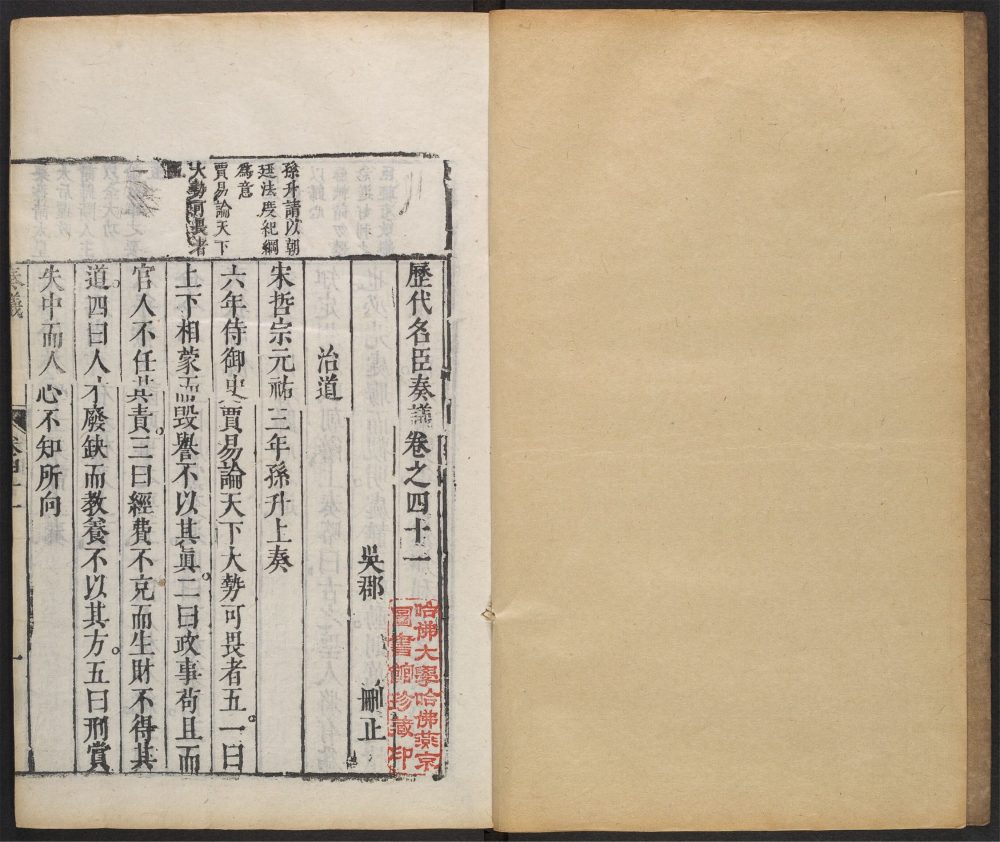 歷代名臣奏議卷之四十一
吳郡 刪正
治道
宋哲宗元祐三年孫升上奏
六年侍御史賈易論天下大勢可畏者五一曰
上下相蒙而毀譽不以其眞二曰政事苟且而
官人不任其責三曰經費不充而生財不得其
道四曰人才廢缺而教養不以其方五曰刑賞
失中而人心不知所向
孫升請以朝
廷法度紀綱
爲意
賈易論天下
大勢可畏者
奏議
卷四十一
一
哈佛大學哈佛燕京
圖書館珍藏印